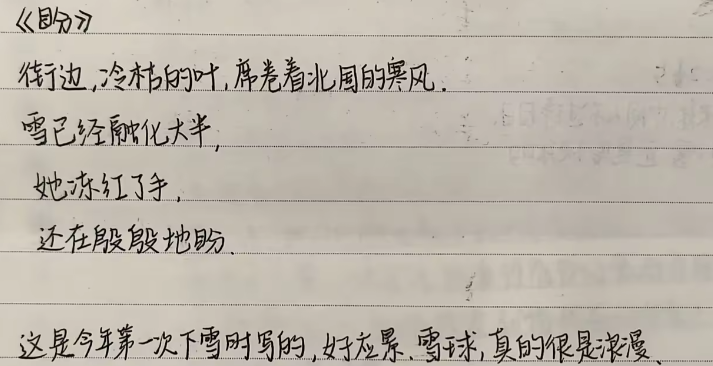 《盼》
街边,冷枯的叶,席卷着北国的寒风.
雪已经融化大半,
她冻红了手,
还在殷殷地盼.
这是今年第一次下雪时写的,好应景.雪球,真的很是浪漫、